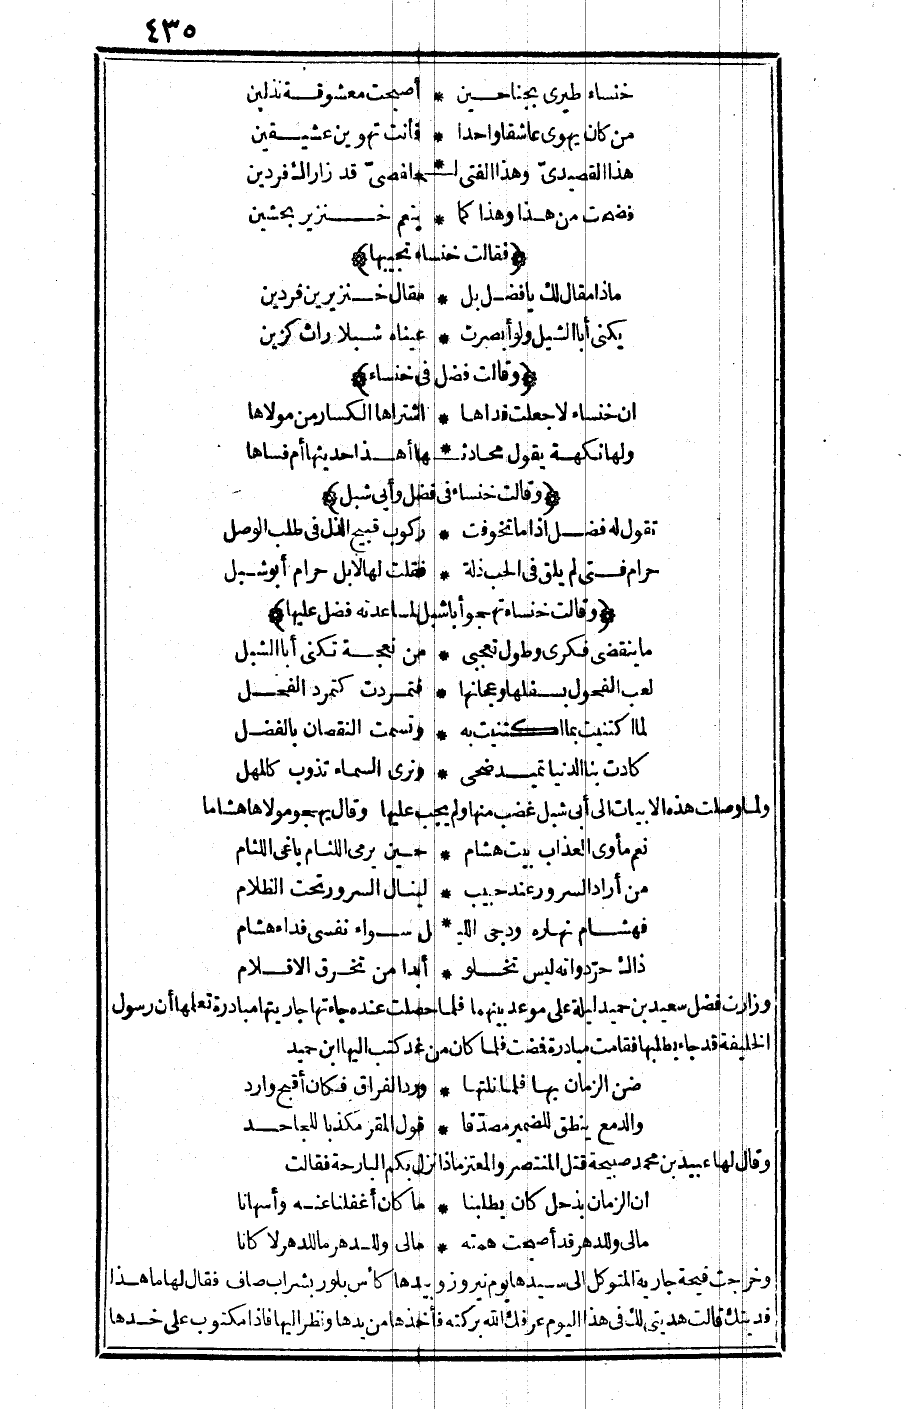 ٤٣٥
خنساء طيرى بجناحين * أصبحت معشوقة نذلين
من كان يهوى عاشقا واحدا * فأنت تهوين عشيقين
هذا القصيدى وهذا الفتى ا * قد زارك فردين
فضمت من هذا وهذا كما * ينعم خنزير بحشين
﴿فقالت خنساء تجيبها﴾
ماذا مقال لك يا فضل بل * مقال خنزيرين فردين
يكنى أبا الشبل ولو أبصرت * عيناه شبلا راث كرّين
﴿وقالت فضل فى خنساء﴾
ان خنساء لا جعلت فداها * اشتراها الكسار من مولاها
ولها نكهة يقول محاذيـ * ـها أهذا حديثها أم فساها
﴿وقالت خنساء فى فضل وأبى شبل﴾
تقول له فضل اذا ما تخوفت * ركوب قبيح الذل فى طلب الوصل
حرام فتى لم يلق فى الحب ذلة * فقلت لها لا بل حرام أبو شبل
﴿وقالت خنساء تهجو أبا شبل لمساعدته فضل عليها﴾
ما ينقضى فكرى وطول تعجبى * من نعجة تكنى أبا الشبل
لعب الفحول بسفلها وعجانها * فتمردت كتمرد الفحل
لما اكتنيت بما اكتنيت به * وتسمت النقصان بالفضل
كادت بنا الدنيا تميد ضحى * ونرى السماء تذوب كالمهل
ولما وصلت هذه الابيات الى أبى شبل غضب منها ولم يجب عليها وقال يهجو مولاها هشاما
نعم مأوى العذاب بيت هشام * حين يرمى اللثام باغى اللثام
من أراد السرور عند حبيب * لينال السرور تحت الظلام
فهشام نهاره ودجى الليـ * ـل سواء نفسى فداء هشام
ذاك حرّ دواته ليس تخلو * أبدا من تخرق الاقلام
وزارت فضل سعيد بن حميد ليلة على موعد بينهما فلما حصلت عنده جاءتها جاريتها مبادرة تعلمها أن رسول
الخليفة قد جاء يطلبها فقامت مبادرة فمضت فلما كان من غد كتب اليها ابن حميد
ضن الزمان بها فلما نلتها * ورد الفراق فكان أقبح وارد
والدمع ينطق للضمير مصدّقا * قول المقر مكذبا للجاحد
وقال لها عبيد بن محمد صبيحة قتل المنتصر والمعتز ماذا نزل بكم البارحة فقالت
ان الزمان بذحل كان يطلبنا * ما كان أغفلنا عنه وأسهانا
مالى وللدهر قد أصبحت همته * مالى وللدهر ما للدهر لا كانا
وخرجت قبيحة جارية المتوكل الى سيدها يوم نيروز وبيدها كأس بلور بشراب صاف فقال لها ما هذا
فديتك قالت هديتى لك فى هذا اليوم عرفك الله بركته فأخذها من يدها ونظر اليها فاذا مكتوب على خدها